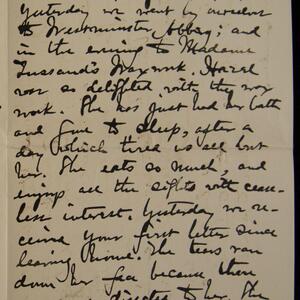 Yesterday we went by ourselves
to Westminster Abbey; and
in the evening to Madame
Tussaud's Waxwork. Hazel
was so delighted with the wax
work. She has just had her bath
and gone to sleep, after a
day which tired us all but
her. She eats so much, and
enjoys all the sights with cease-
less interest. Yesterday we re-
ceived your first letter since
leaving home. The tears ran
down her face because there
directed to her. She